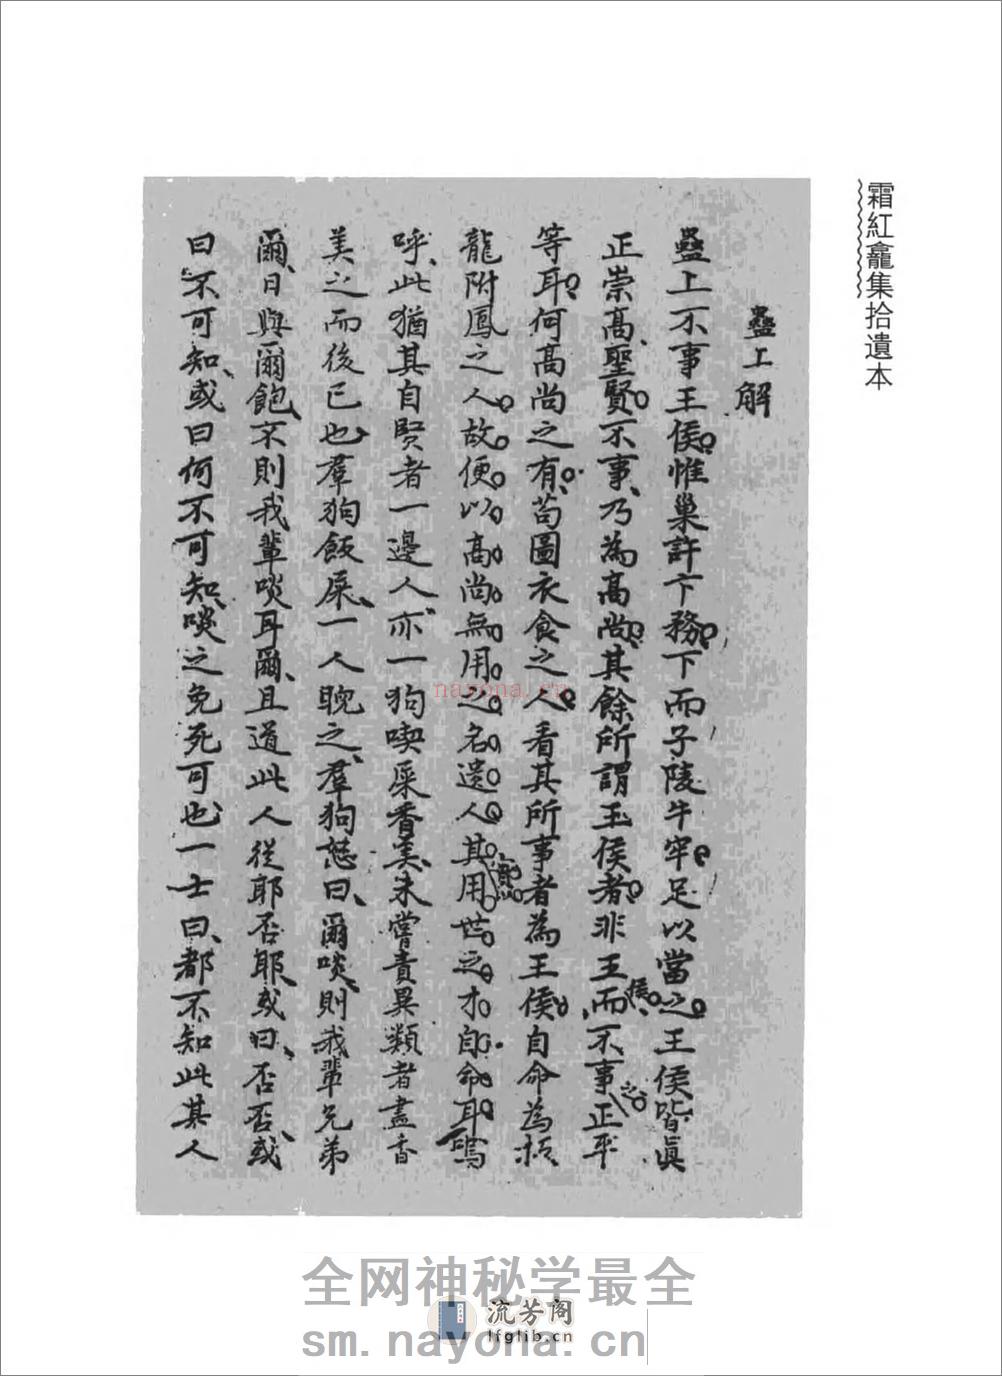 霜紅龕集拾遺本
蠱上解
蠱上不事王侯惟巢許卞務下而子陵牛牢足以當之王侯皆眞
正崇高聖賢不事乃為高尚其餘所謂王侯者非王侯而不事之正平
等耳何高尚之有苟圖衣食之人看其所事者為王侯自命為攀
龍附鳳之人故便以高尚無用之名遺人其用世之才自命耳嗚
呼此猶其自賢者一邊人亦一狗喫屎香美未嘗責異類者盡香
美之而後已也羣狗飯屎一人睨之羣狗慭曰爾啖則我輩兄弟
爾日與爾飽不則我輩啖耳爾且道此人從耶否耶或曰否否或
曰不可知或曰何不可知啖之免死可也一士曰都不知此其人
nayona.cn
全网神秘学最全
流芳阁
lfglib.cn
sm.nayona.cn